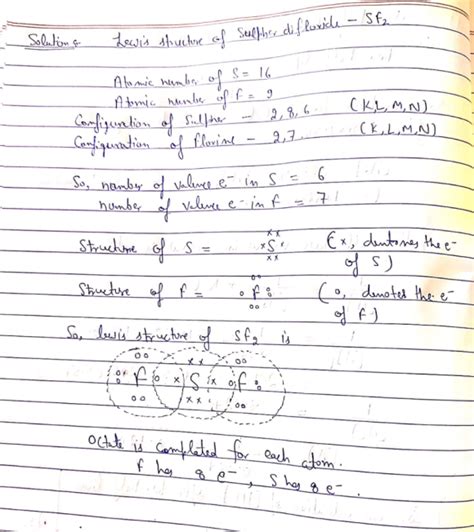 Solution :- Lewis structure of Sulpher difluoride - SF2
Atomic number of S = 16
Atomic number of F = 9
Configuration of Sulpher - 2,8,6 (K,L,M,N)
Configuration of Florine - 2,7. (K,L,M,N)
So, number of valence e⁻ in S = 6
number of valence e⁻ in F = 7
Structure of S = ×S× (×, the e⁻
of S)
Structure of F = F (o, denotes the e⁻
of F.)
So, lewis structure of SF2 is
F S F
Octate is completed for each atom.
F has 8 e⁻, S has 8 e⁻.